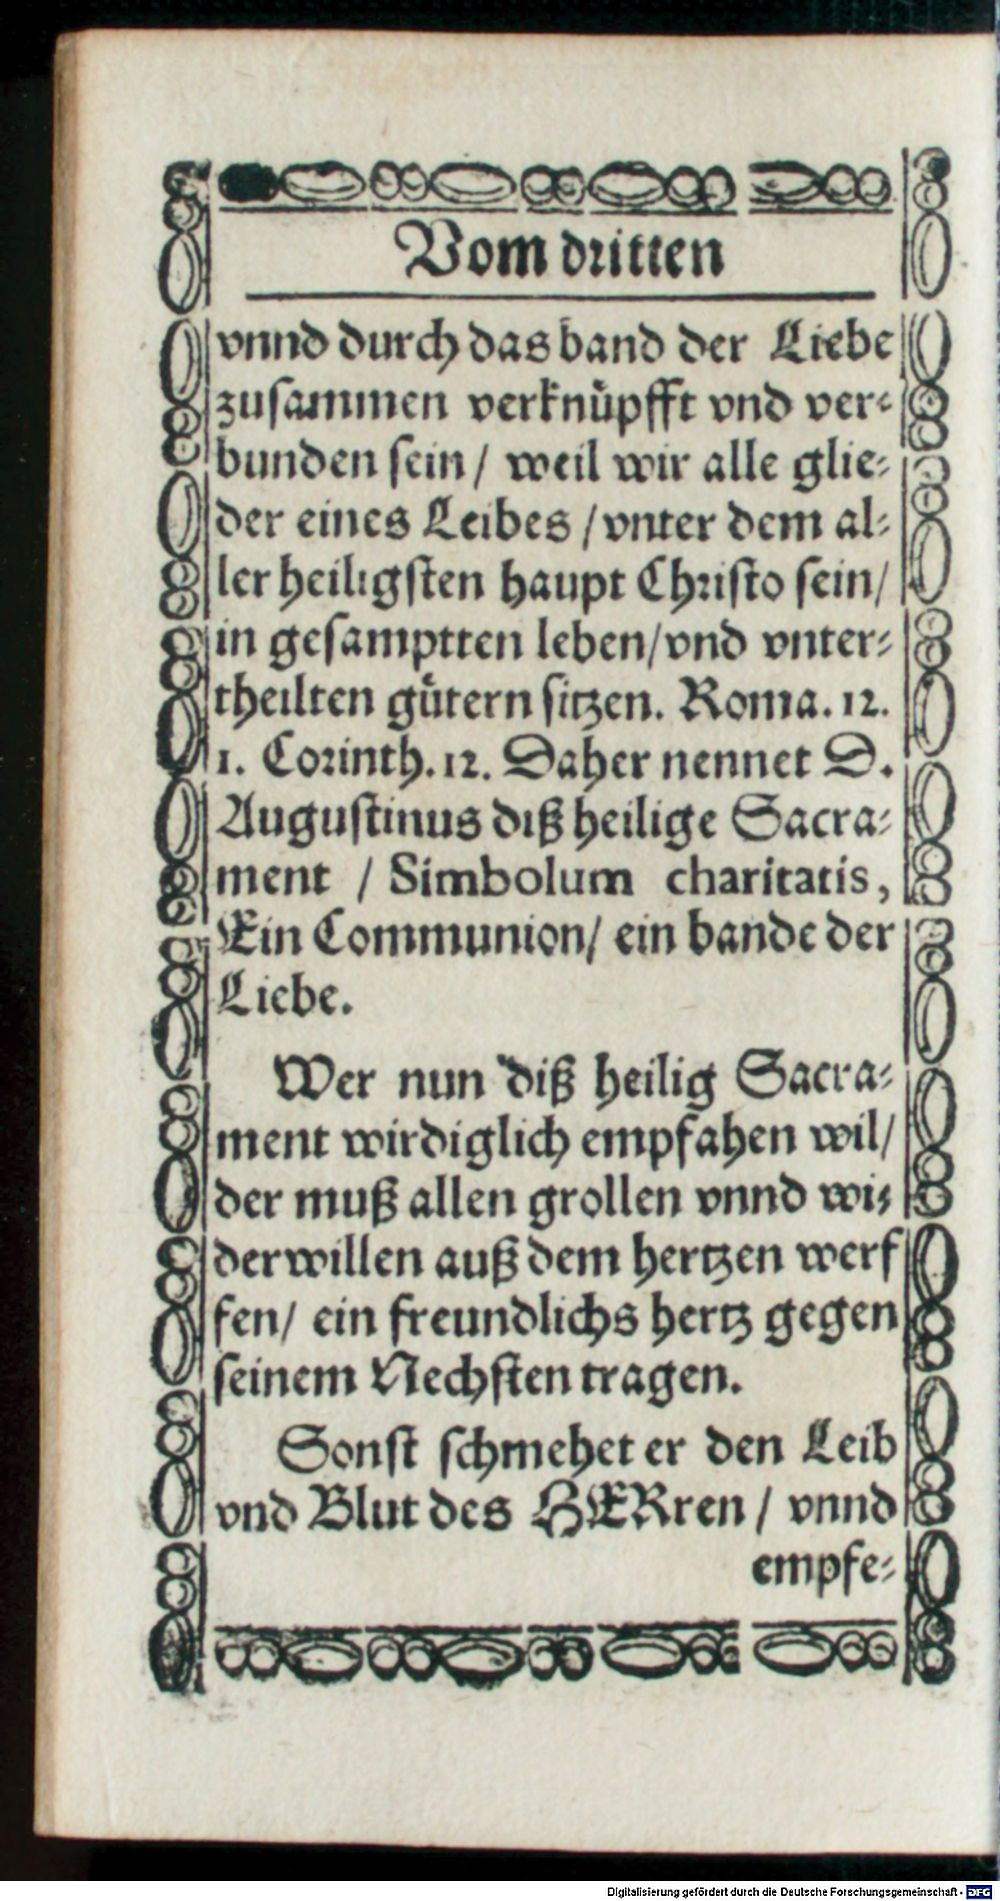 Vom dritten
vnnd durch das band der Liebe
zusammen verknüpfft vnd ver⸗
bunden sein / weil wir alle glie⸗
der eines Leibes / vnter dem al⸗
ler heiligsten haupt Christo sein/
in gesamptten leben/vnd vnter⸗
theilten gütern sitzen. Roma. 12.
1. Corinth. 12. Daher nennet D.
Augustinus diß heilige Sacra⸗
ment / Simbolum charitatis,
Ein Communion/ ein bande der
Liebe.
Wer nun diß heilig Sacra⸗
ment wirdiglich empfahen wil/
der muß allen grollen vnnd wi⸗
derwillen auß dem hertzen werf
fen/ ein freundlichs hertz gegen
seinem Nechsten tragen.
Sonst schmehet er den Leib
vnd Blut des HERren / vnnd
empfe⸗
Digitalisierung gefördert durch die Deutsche Forschungsgemeinschaft - DFG